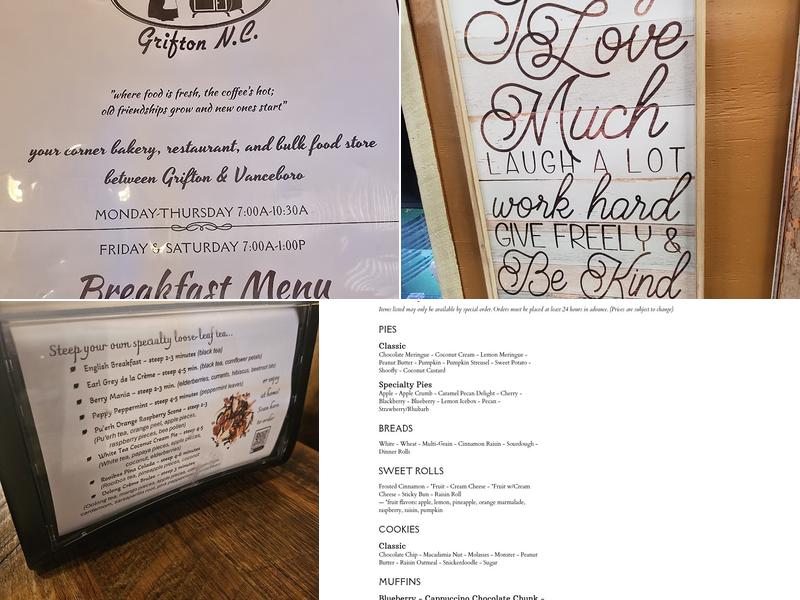 Grifton N.C.
"where food is fresh, the coffee's hot;
old friendships grow and new ones start"
your corner bakery, restaurant, and bulk food store
between Grifton & Vanceboro
MONDAY-THURSDAY 7:00A-10:30A
FRIDAY & SATURDAY 7:00A-1:00P
Breakfast Menu
Love
Much
LAUGH A LOT
work hard
GIVE FREELY &
Be Kind
Steep your own specialty loose-leaf tea...
English Breakfast - steep 2-3 minutes (black tea)
Earl Grey de la Crème - steep 4-5 min. (black tea, cornflower petals)
Berry Mania - steep 2-3 min. (elderberries, currants, hibiscus, beetroot tea)
Peppy Peppermint - steep 4-5 minutes (peppermint leaves)
Pu'erh Orange Raspberry Scone - steep 2-3
(Pu'erh tea, orange peel, apple pieces,
raspberry pieces, bee pollen)
White Tea Coconut Cream Pie - steep 4-5
(White tea, papaya pieces, apple pieces,
coconut, elderberries)
Rooibos Pina Colada - steep 2-3 minutes
(Rooibos tea, pineapple pieces, coconut
Oolong Crème Brulee - steep 2-3 minutes
(Oolong tea, mango pieces, apple pieces,
or enjoy
at home!
Scan here
to order
Items listed may only be available by special order. Orders must be placed at least 24 hours in advance. (Prices are subject to change)
PIES
Classic
Chocolate Meringue - Coconut Cream - Lemon Meringue -
Peanut Butter - Pumpkin - Pumpkin Streusel - Sweet Potato -
Shoofly - Coconut Custard
Specialty Pies
Apple - Apple Crumb - Caramel Pecan Delight - Cherry -
Blackberry - Blueberry - Lemon Icebox - Pecan -
Strawberry/Rhubarb
BREADS
White - Wheat - Multi-Grain - Cinnamon Raisin - Sourdough -
Dinner Rolls
SWEET ROLLS
Frosted Cinnamon - *Fruit - Cream Cheese - *Fruit w/Cream
Cheese - Sticky Bun - Raisin Roll
— *fruit flavors: apple, lemon, pineapple, orange marmalade,
raspberry, raisin, pumpkin
COOKIES
Classic
Chocolate Chip - Macadamia Nut - Molasses - Monster - Peanut
Butter - Raisin Oatmeal - Snickerdoodle - Sugar
MUFFINS
Blueberry - Cappuccino Chocolate Chunk -